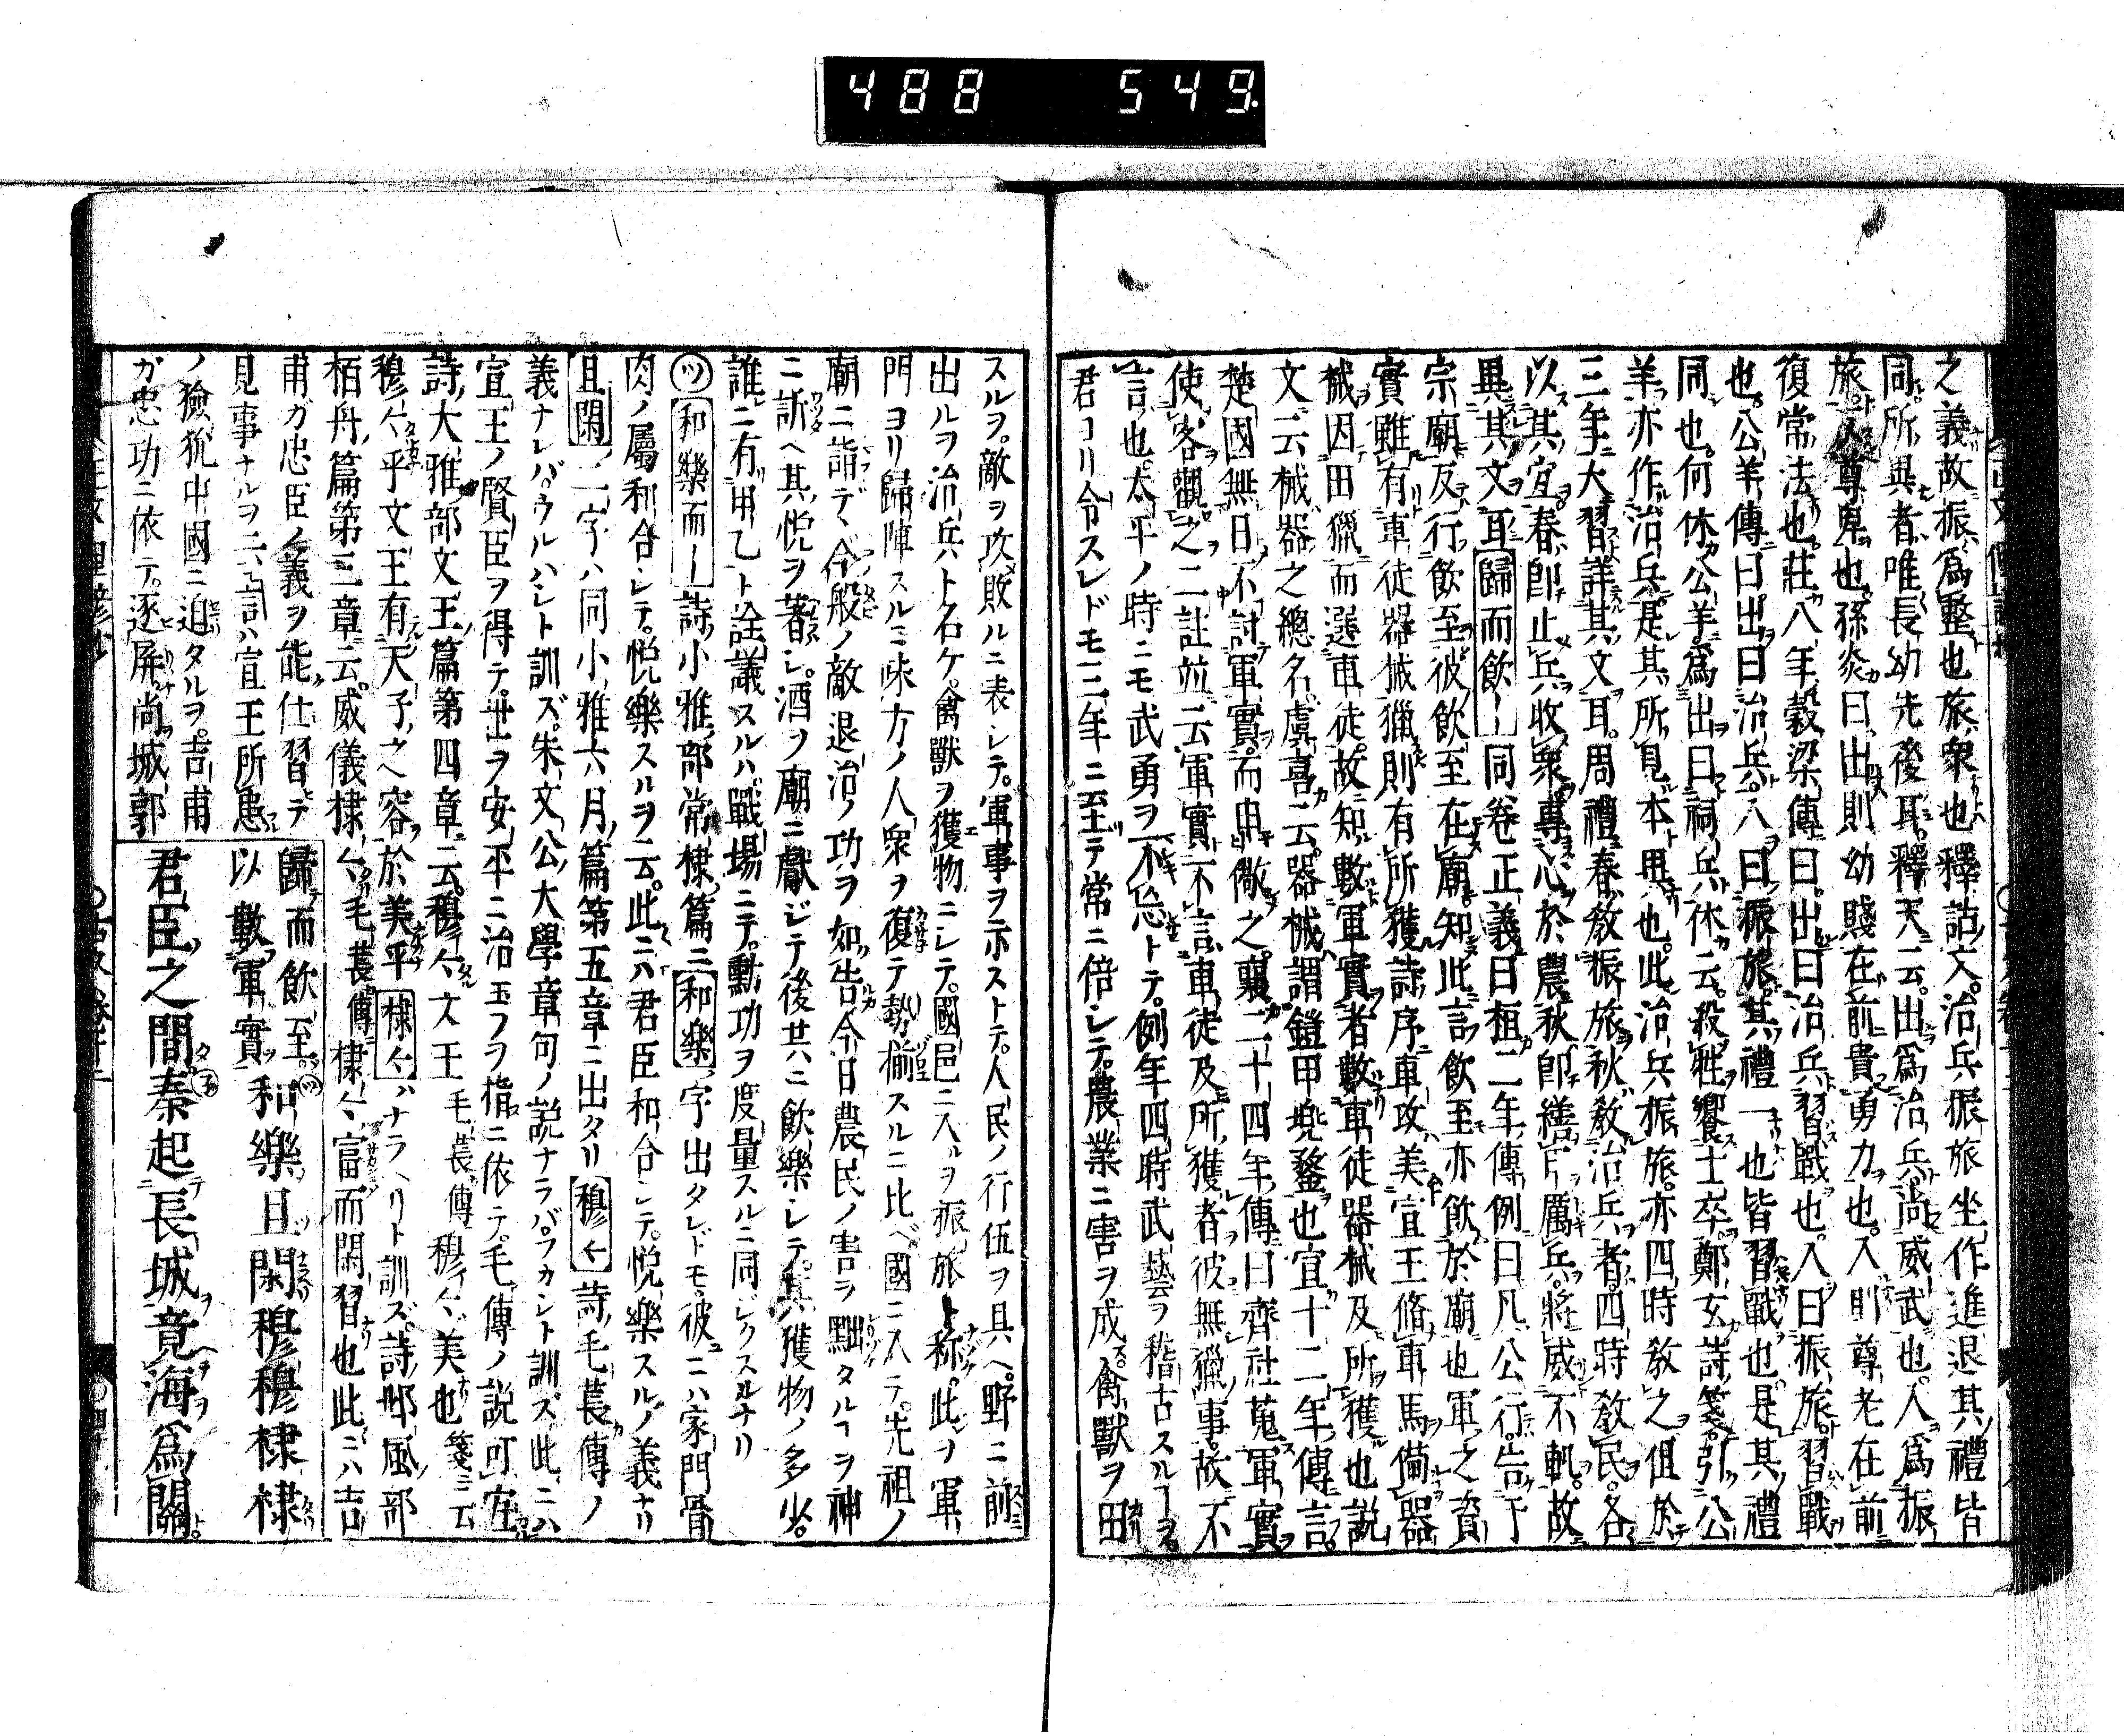 488 549
之義故振爲整也旅衆也釋詁文治兵振旅坐作進退其禮皆
同所異者唯長幼先後耳釋天云出爲治兵尚威武也入爲振
旅反尊卑也孫炎曰出則幼賤在前貴勇力也入則尊老在前
復常法也莊八年穀梁傳曰出曰治兵習戰也入曰振旅習戰
也公羊傳曰出曰治兵入曰振旅其禮一也皆習戰也是其禮
同也何休公羊爲出曰祠兵休云殺牲饗士卒鄭玄詩箋引公
羊亦作治兵是其所見本異也此治兵振旅亦四時教之但於
三年大習詳其文耳周禮春教振旅秋教治兵者四時教民各
以其宜春即止兵收衆專心於農秋即繕甲厲兵將威不軌故
異其文耳歸而飲同卷正義曰桓二年傳例曰凡公行告于
宗廟反行飲至彼飲至在廟知此言飲至亦飲於廟也軍之資
實雖有車徒器械獵則有所獲詩序車攻美宣王脩車馬備器
械因田獵而選車徒故知數軍實者數車徒器械及所獲也説
文云械器之總名虞喜云器械謂鎧甲兜鍪也宣十二年傳言
楚國無日不討軍實而申儆之襄二十四年傳曰齊社蒐軍實
使客觀之二註並云軍實不言車徒及所獲者彼無獵事故不
言也太平ノ時ニモ武勇ヲ不忘トテ例年四時武藝ヲ稽古スルヿヲ
君ヨリ令スレドモ三年ニ至テ常ニ倍シテ農業ニ害ヲ成ス禽獸ヲ田
スルヲ敵ヲ攻敗ルニ表シテ軍事ヲ示ストテ人民ノ行伍ヲ具ヘ野ニ前
出ルヲ治兵ト名ケ禽獸ヲ獲物ニシテ國邑ニ入ルヲ振旅ト称此ヲ軍
門ヨリ歸陣スルニ味方ノ人衆ヲ復テ勢揃スルニ比ベ國ニ入テ先祖ノ
廟ニ詣デヽ今般ノ敵退治ノ功ヲ如告今日農民ノ害ヲ黜タルヿヲ神
ニ訴ヘ其悦ヲ著シ酒ヲ廟ニ獻ジテ後共ニ飲樂シテ其獲物ノ多少
誰ニ有甲乙ト詮議スルハ戰場ニテ勲功ヲ度量スルニ同シクスルナリ
ツ和樂而詩小雅部常棣篇ニ和樂字出タレドモ彼ニハ家門骨
肉ノ屬和合シテ悦樂スルヲ云此ニハ君臣和合シテ悦樂スルノ義ナリ
且閑二字ハ同小雅六月篇第五章ニ出タリ穆々詩毛萇傳ノ
義ナレバウルハシト訓ズ朱文公大學章句ノ説ナラバフカシト訓ズ此ニハ
宣王ノ賢臣ヲ得テ世ヲ安平ニ治玉フヲ指ニ依テ毛傳ノ説可宜
詩大雅部文王篇第四章云穆々文王毛萇傳穆々美也箋云
穆々乎文王有天子之容於美乎棣々ハナラヘリト訓ズ詩邶風部
栢舟篇第三章云威儀棣々毛萇傳棣々富而閑習也此ニハ吉
甫ガ忠臣ノ義ヲ能仕習テ
見事ナルヲ云言ハ宣王所患
ノ獫狁中國ニ迫タルヲ吉甫
ガ忠功ニ依テ逐屏尚城郭
歸而飲至和樂且閑穆穆棣棣
以數軍實
君臣之間秦起長城竟海爲關